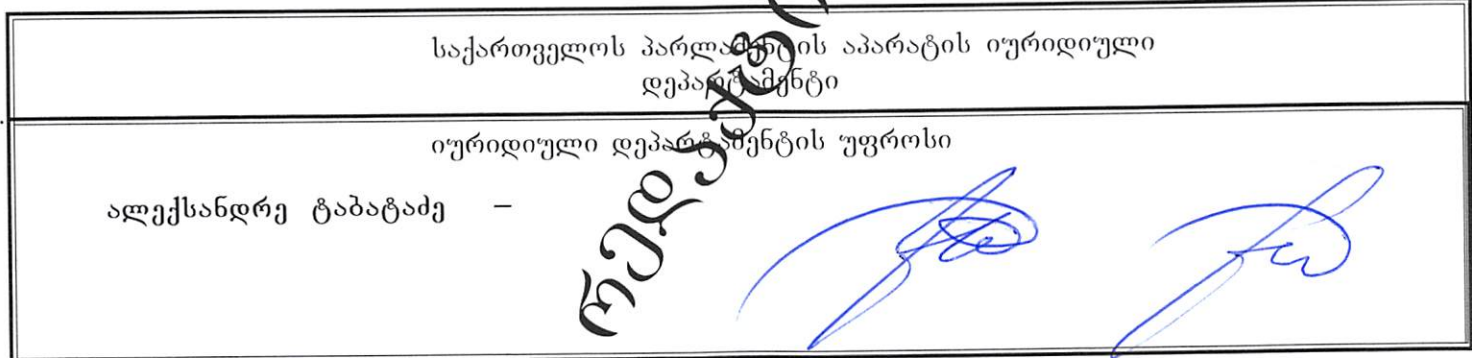 საქართველოს პარლამენტის აპარატის იურიდიული
დეპარტამენტი
იურიდიული დეპარტამენტის უფროსი
ალექსანდრე ტაბატაძე –